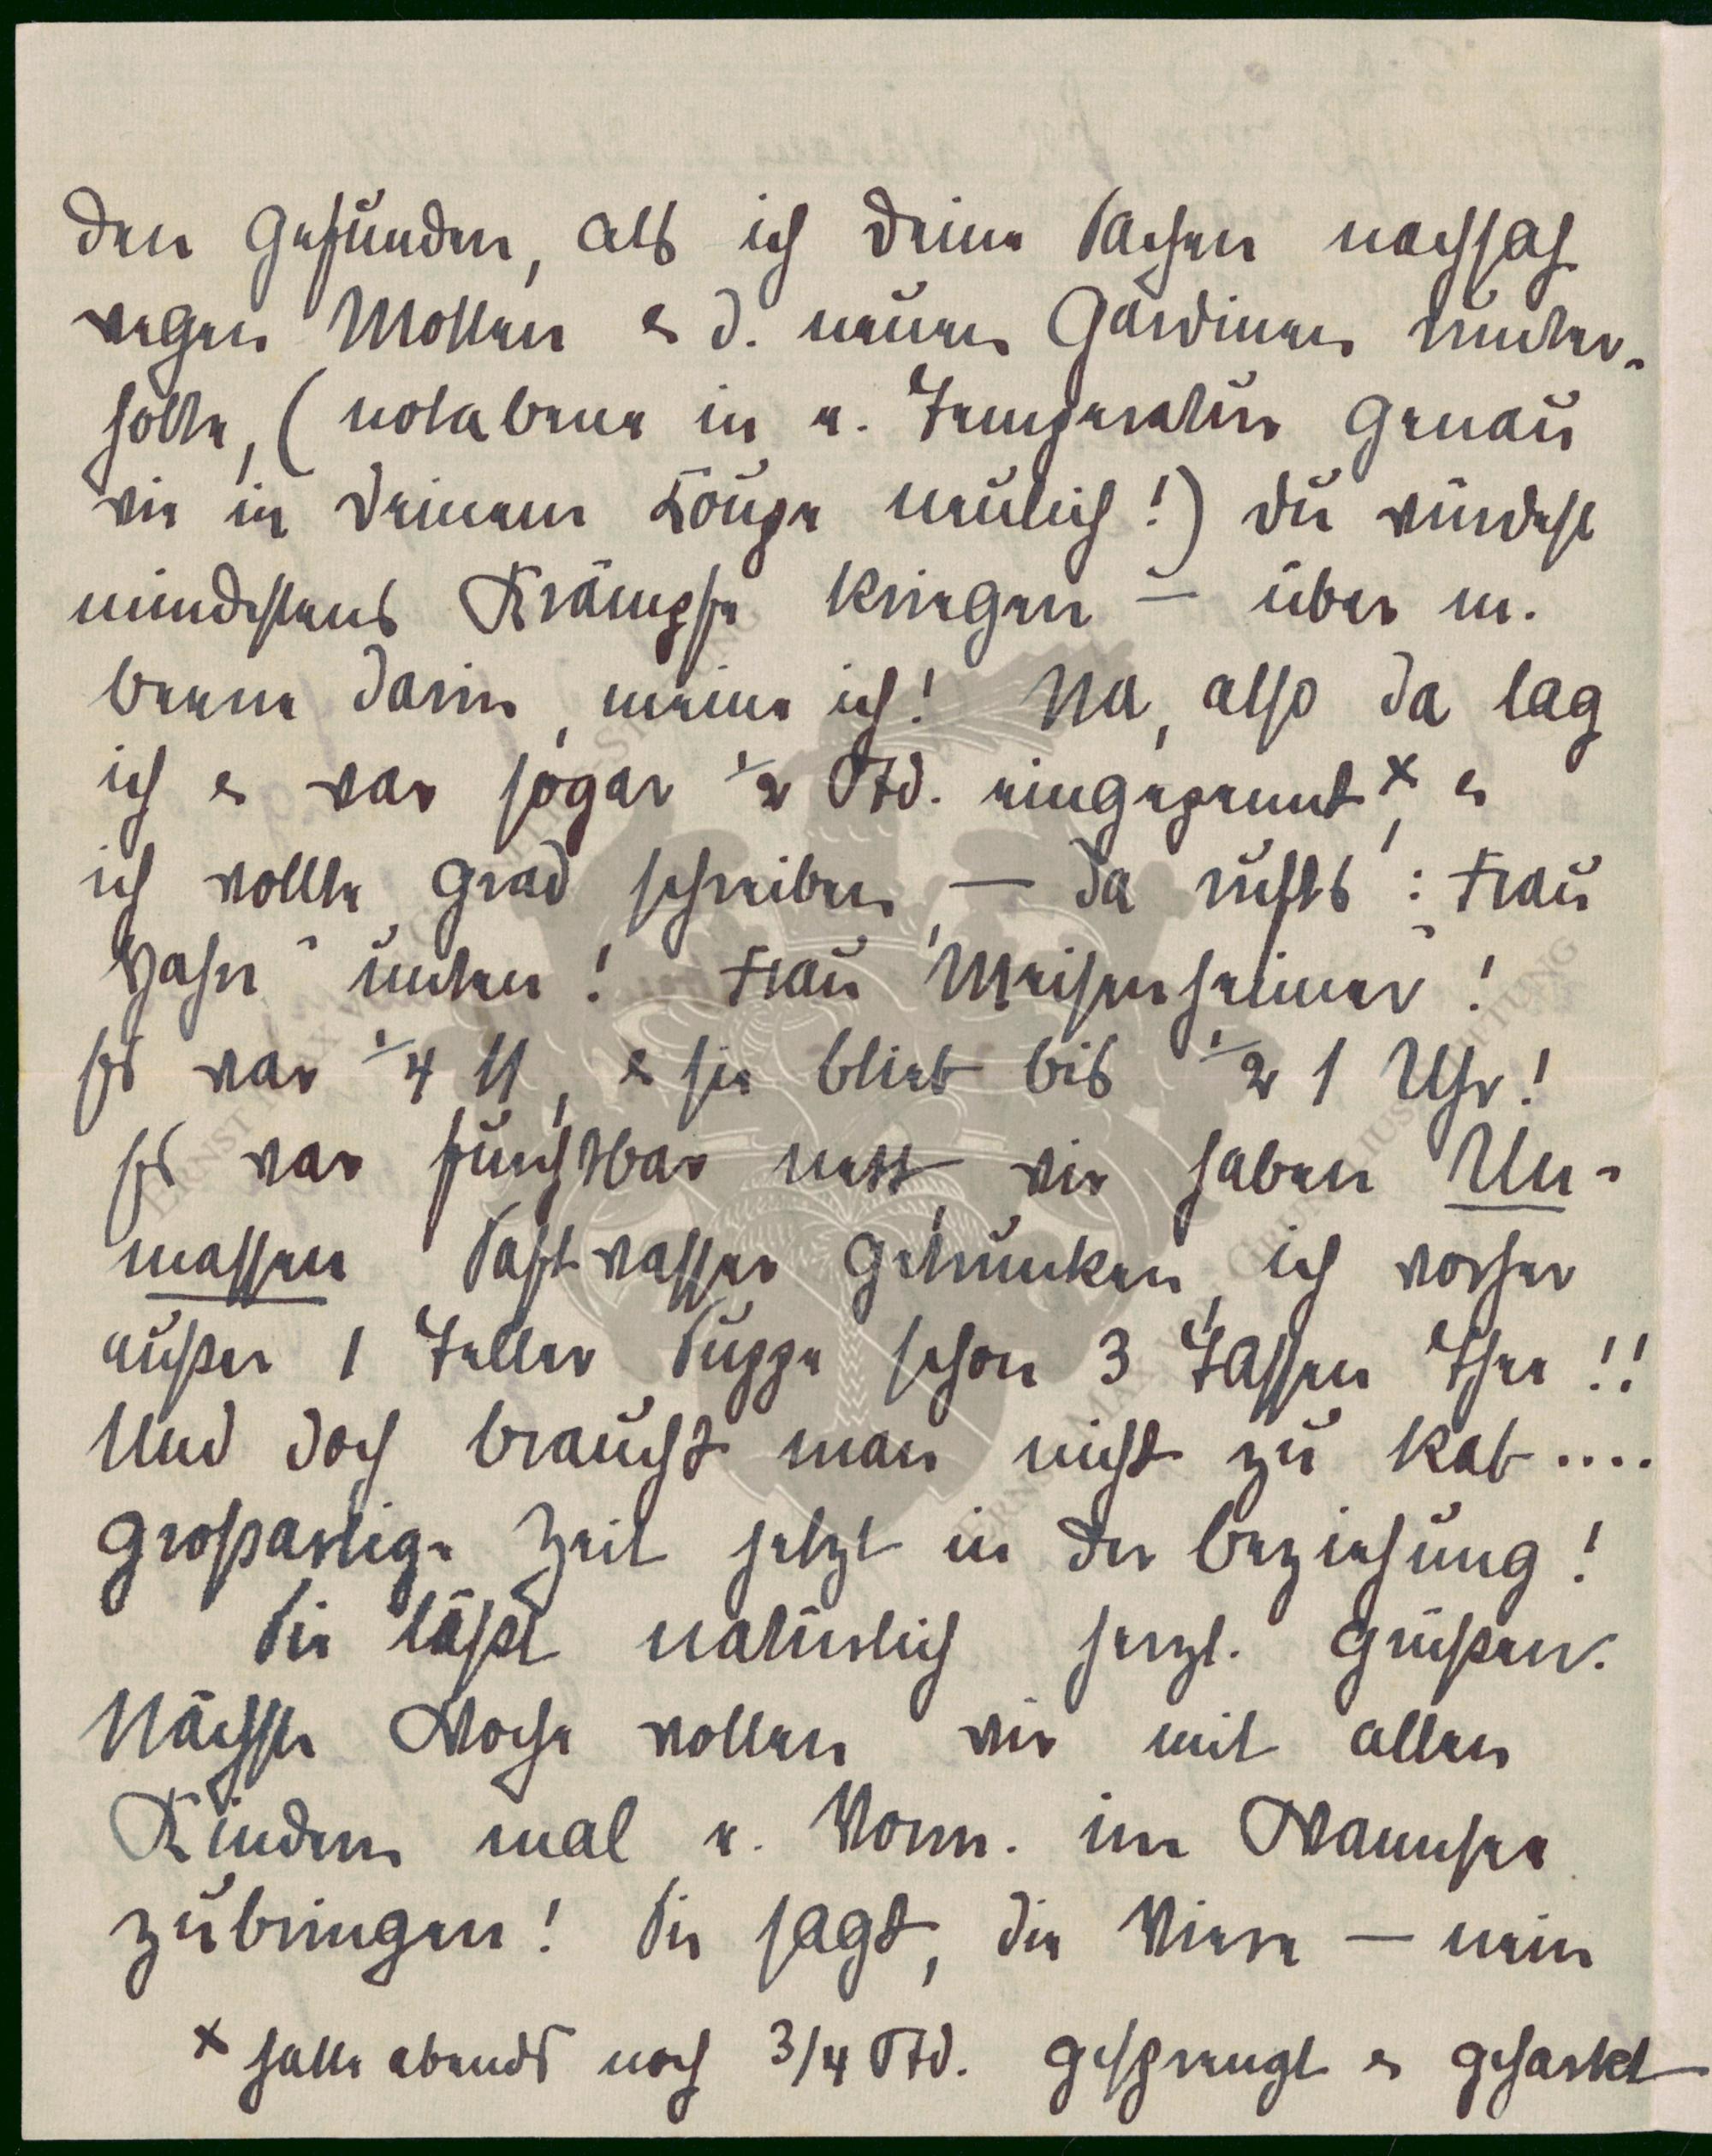 den gefunden, als ich Deine Sachen nachsah
wegen Motten & d. neuen Gardinen runter-
holte, (notabene in e. Temperatur genau
wie in Deinem Koupe neulich!) Du würdest
mindestens Krämpfe kriegen – über m.
beene darin, meine ich! Na, also da lag
ich & war sogar ½ Std. eingepennt ×, &
ich wollte grad schreiben, — da rufts: Frau
Hahn" unten! Frau Meisenheimer!
Es war ¼ 11, & sie blieb bis ½ 1 Uhr!
Es war furchtbar nett, wir haben Un-
massen Saftwasser getrunken, ich vorher
außer 1 Teller Suppe schon 3 Tassen Thee!!
Und doch braucht man nicht zu kab....
großartige Zeit jetzt in der beziehung!
Sie läßt natürlich herzl. grüßen.
Nächste Woche wollen wir mit allen
Kindern mal e. Vorm. im Wannsee
zubringen! Sie sagt, die Viere — nein
× hatte abends noch 3/4 Std. gesprengt & geharkt
ERNST MAX VON GRUNELIUS STIFTUNG
ERNST MAX VON GRUNELIUS STIFTUNG